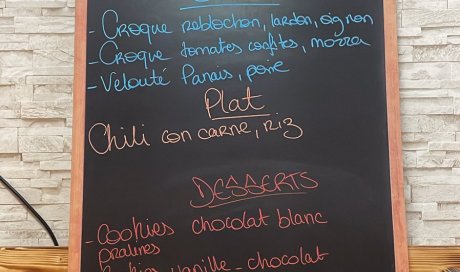 - Croque reblochon, lardon, oignon
- Croque tomates confites, mozza
- Velouté Panais, poire
Plat
Chili con carne, Riz
DESSERTS
- Cookies chocolat blanc
pralines
vanille - chocolat